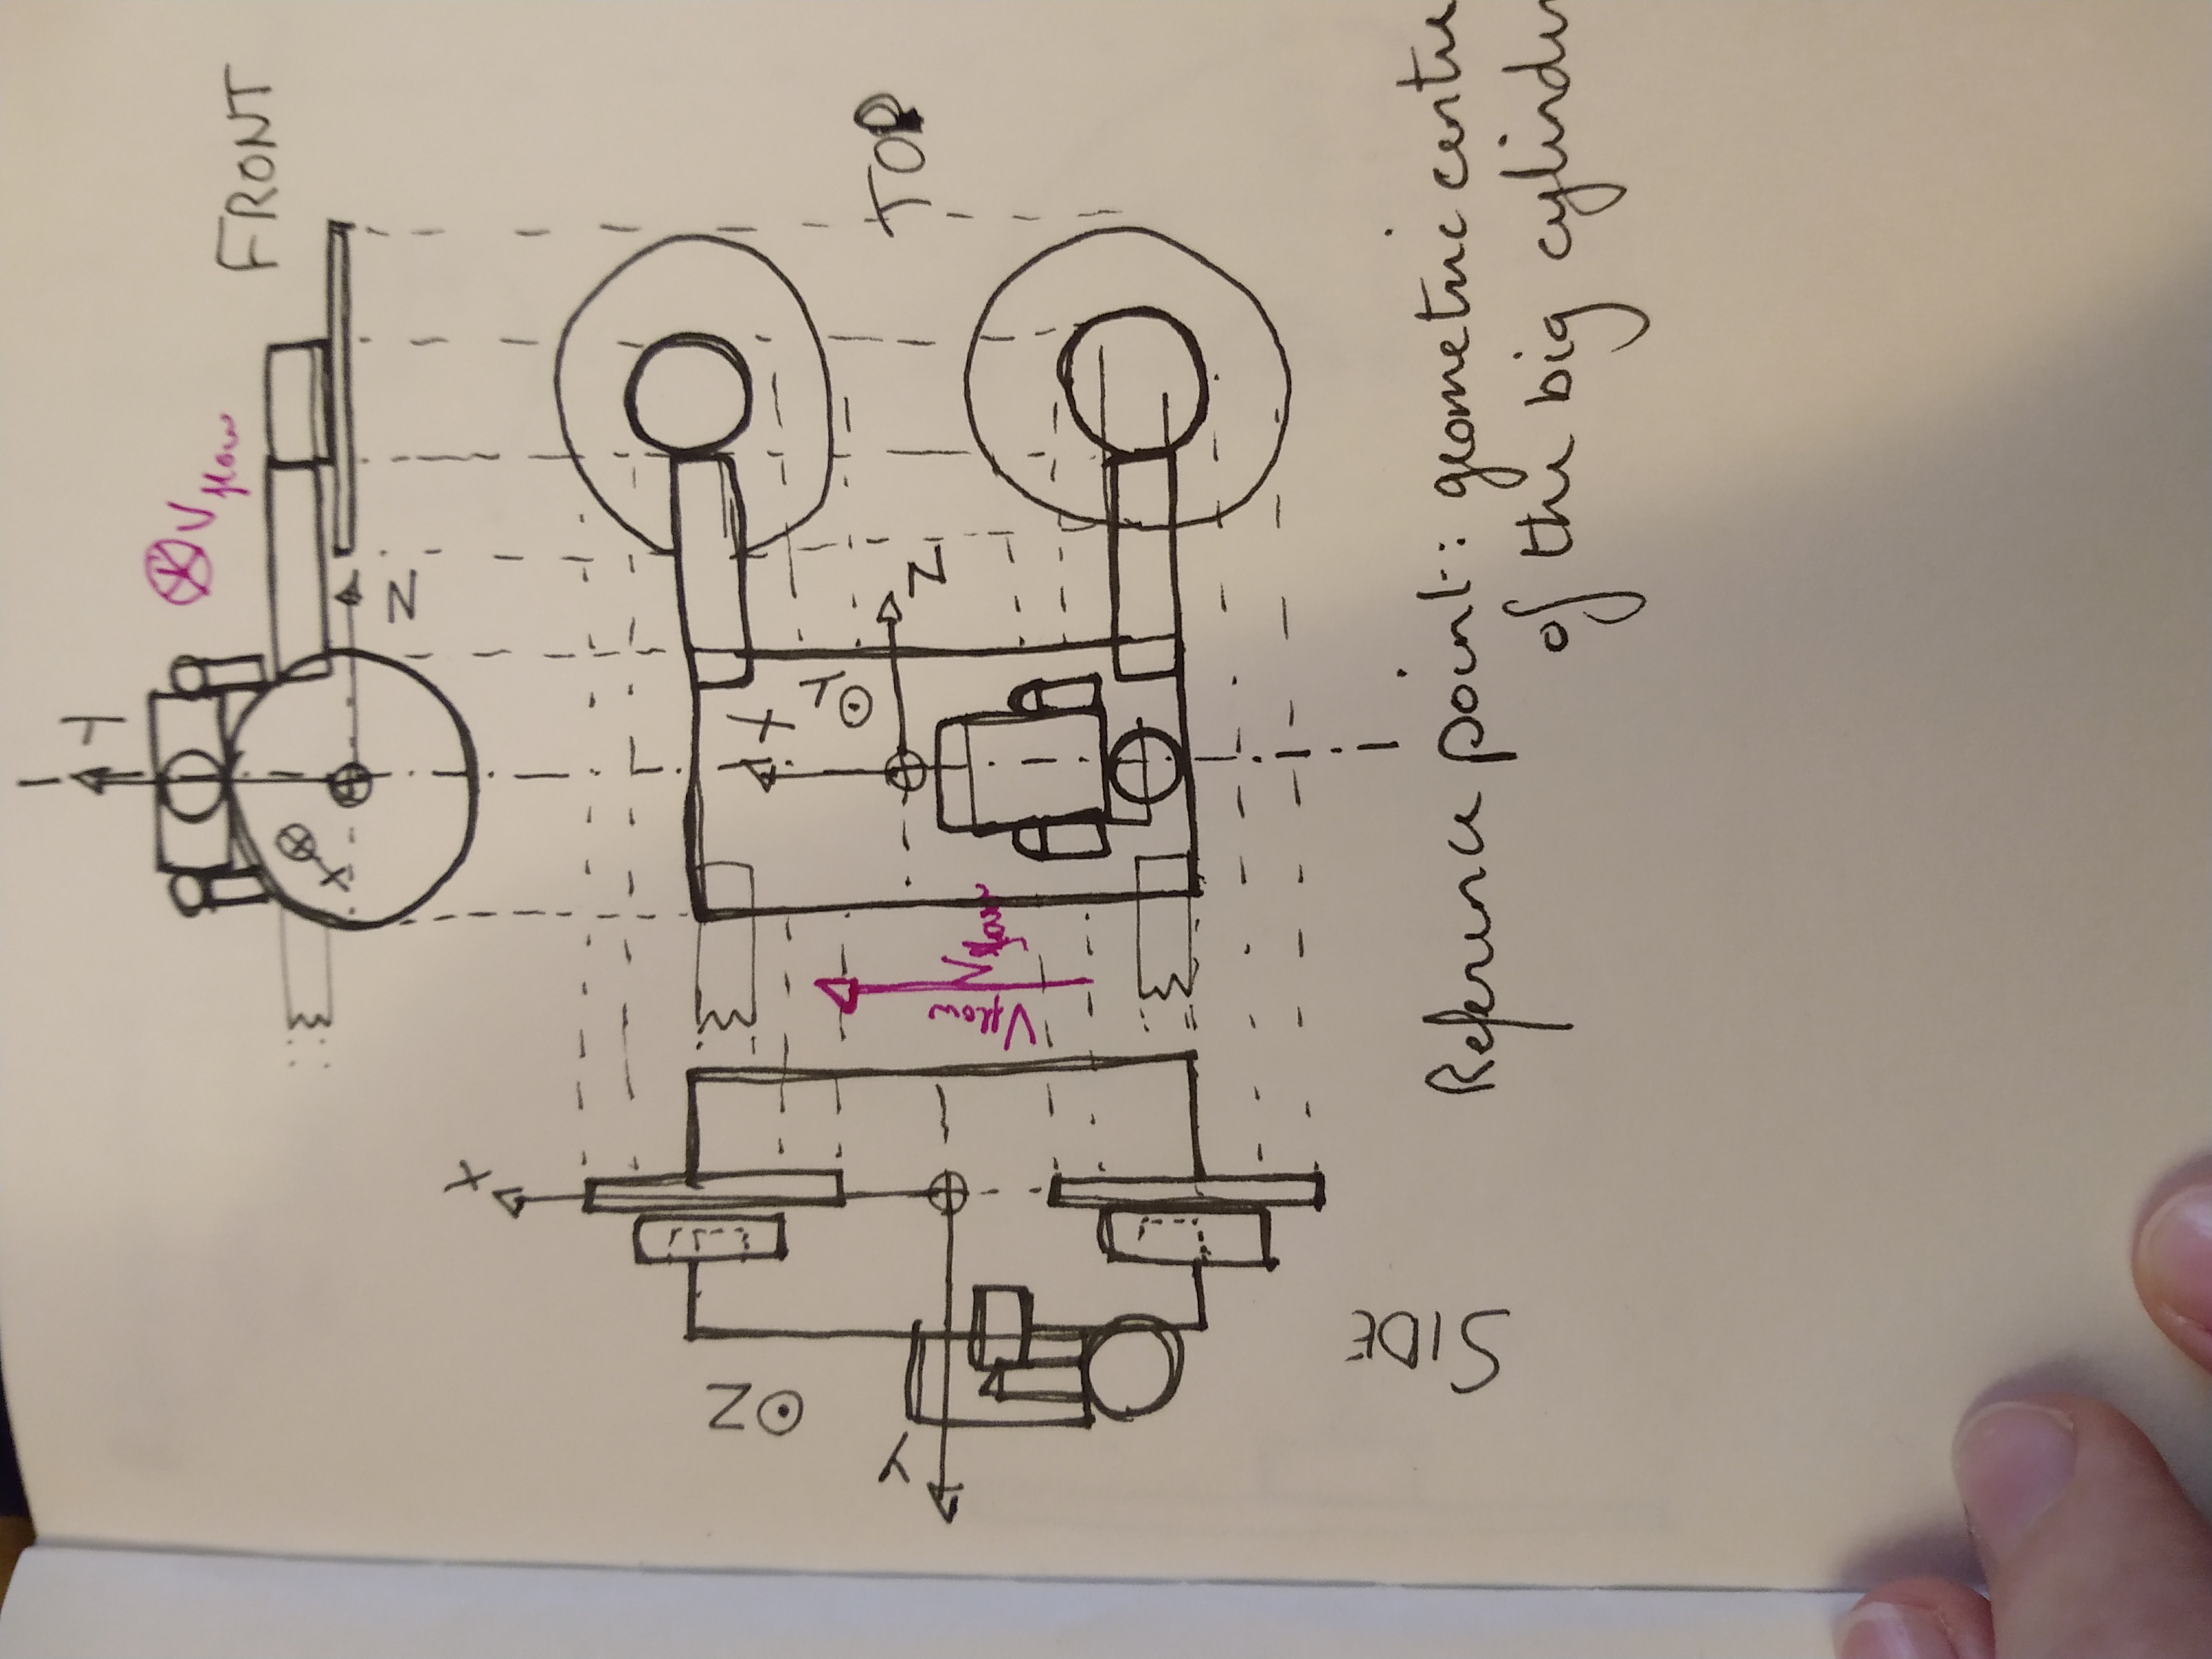 Y
V flow
FRONT
X
Z
X
Z
Y
X
Y
Z
TOP
V flow
V flow
SIDE
Reference point: geometric centre
of the big cylinder